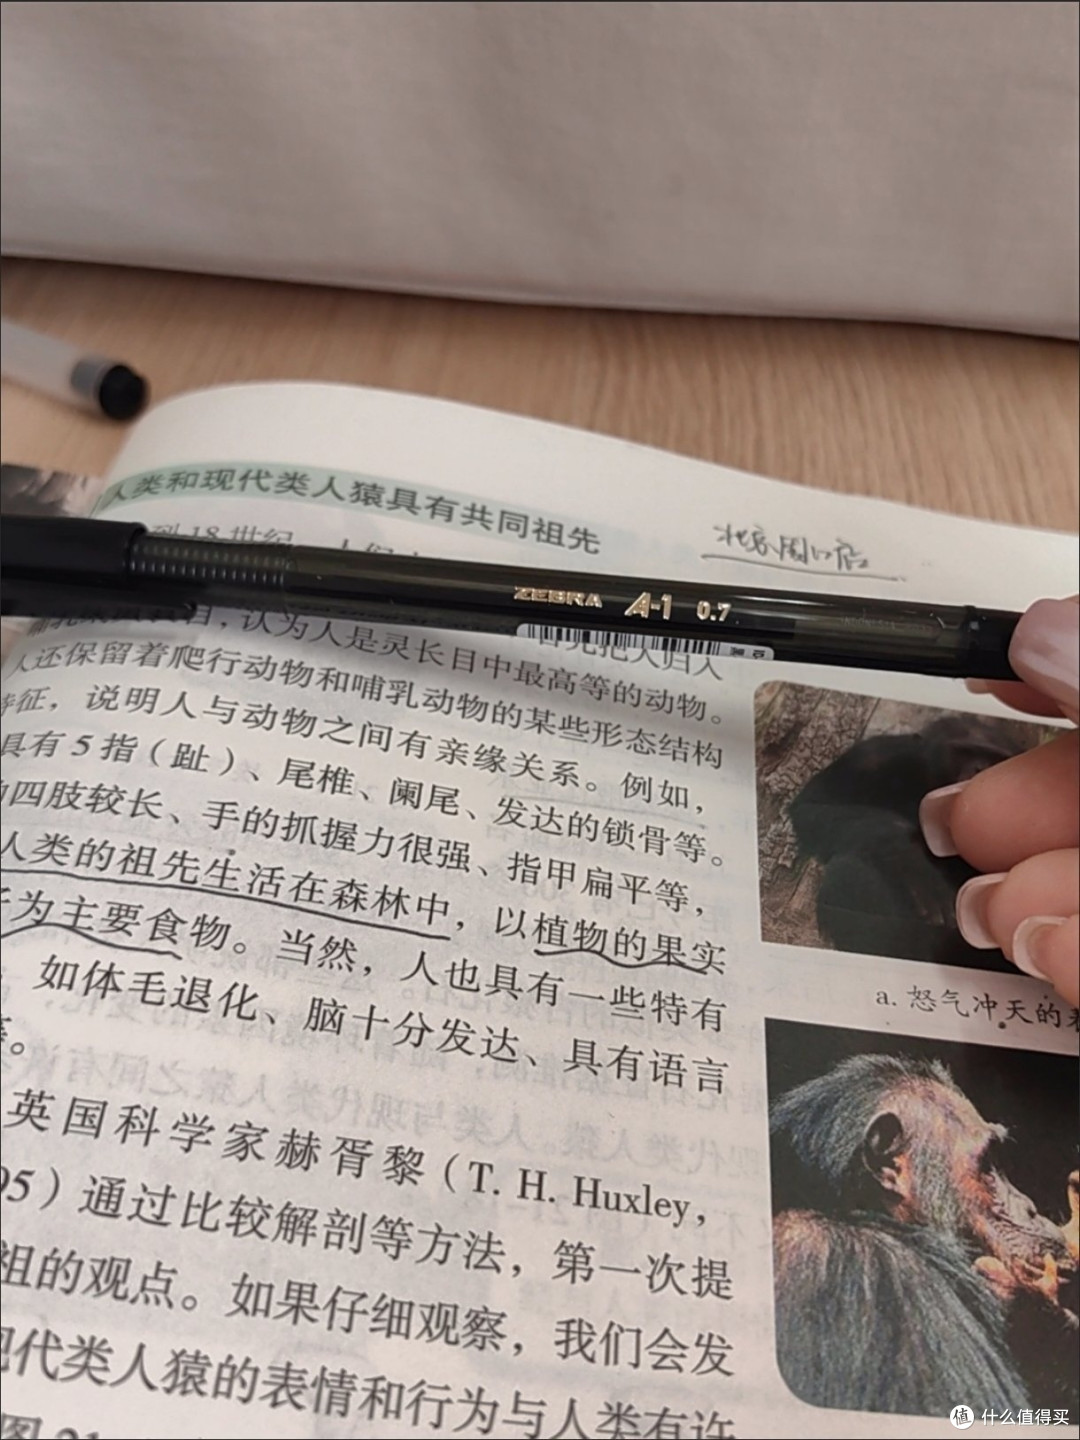 人类和现代类人猿具有共同祖先
北京周口店
到18世纪，人们
ZEBRA A-1 0.7
首先把人归入
哺乳纲灵长目，认为人是灵长目中最高等的动物。
人还保留着爬行动物和哺乳动物的某些形态结构
特征，说明人与动物之间有亲缘关系。例如，
具有5指（趾）、尾椎、阑尾、发达的锁骨等。
四肢较长、手的抓握力很强、指甲扁平等，
人类的祖先生活在森林中，以植物的果实
子为主要食物。当然，人也具有一些特有
如体毛退化、脑十分发达、具有语言
等。
英国科学家赫胥黎（T. H. Huxley，
95）通过比较解剖等方法，第一次提
祖的观点。如果仔细观察，我们会发
现代类人猿的表情和行为与人类有许
图21
a. 怒气冲天的
值 什么值得买